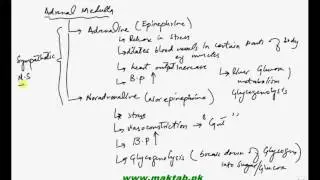 Adrenal Medulla
Adrenaline (Epinephrine)
Release in stress
Dilates blood vessels in certain parts of body
eg muscles
heart output increase
B.P ↑
Liver Glucose
metabolism
Glycogenolysis
Sympathetic
N.S
Noradrenaline (Norepinephrine)
stress
vasoconstriction "Gut"
B.P ↑
Glycogenolysis (break down of Glycogen
into sugar/Glucose
www.maktab.pk